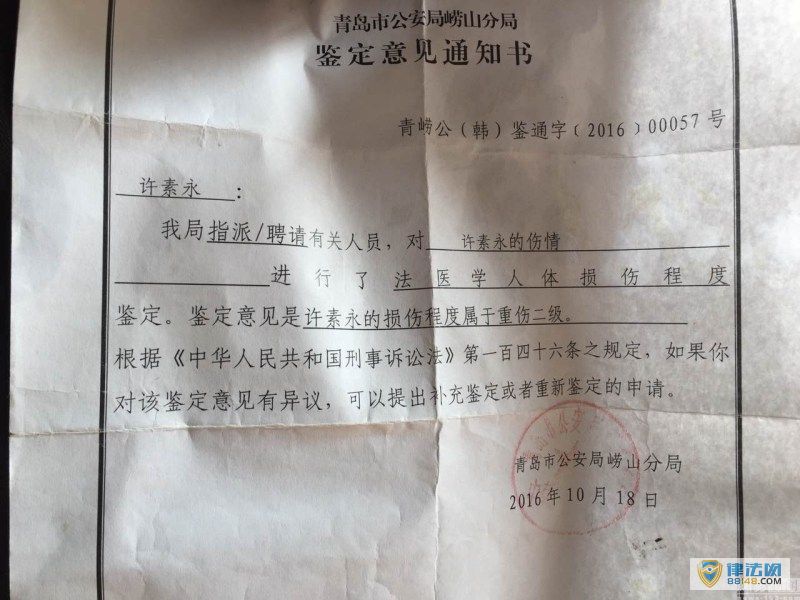 青岛市公安局崂山分局
鉴定意见通知书
青崂公(韩)鉴通字〔2016〕00057号
许素永：
我局指派/聘请有关人员，对 许素永的伤情
进行了法医学人体损伤程度
鉴定。鉴定意见是许素永的损伤程度属于重伤二级。
根据《中华人民共和国刑事诉讼法》第一百四十六条之规定，如果你
对该鉴定意见有异议，可以提出补充鉴定或者重新鉴定的申请。
青岛市公安局崂山分局
2016年10月18日
律法网
88148.com